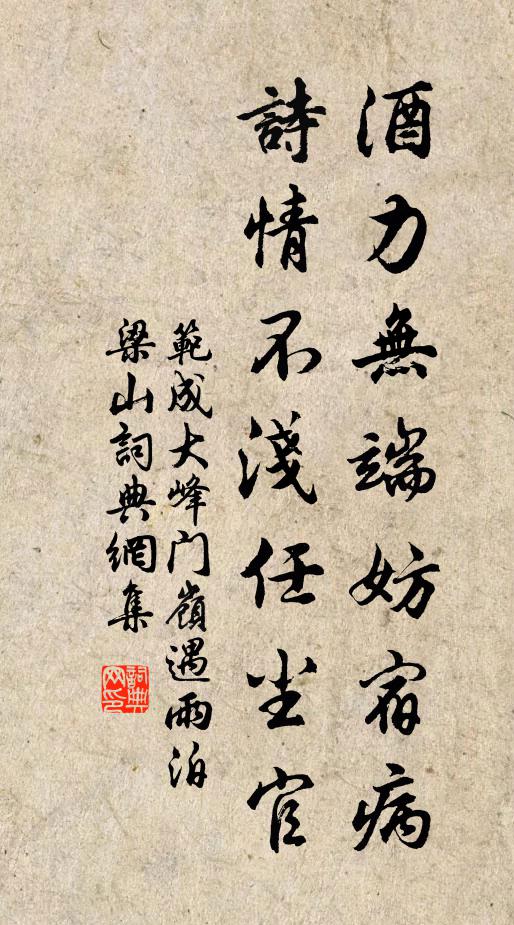 酒力無端妨宿病
詩情不淺任尘官
範成大峰门嶺遇雨泊
梁山詞典網集
詞典
网印